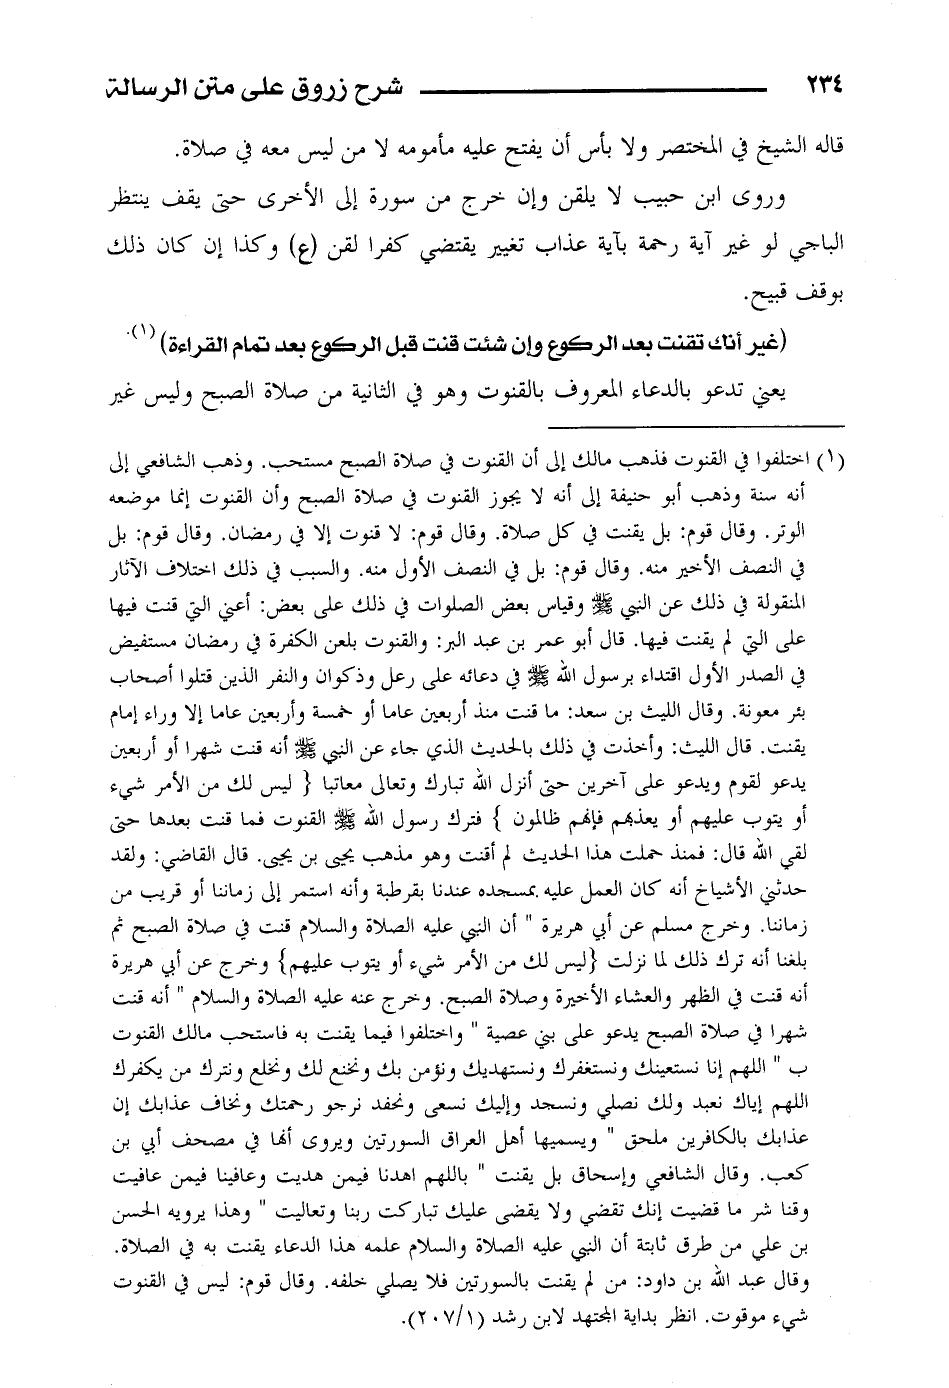 ٢٣٤ شرح زروق على متن الرسالة
قاله الشيخ في المختصر ولا بأس أن يفتح عليه مأمومه لا من ليس معه في صلاة.
وروى ابن حبيب لا يلقن وإن خرج من سورة إلى الأخرى حتى يقف ينتظر
الباجي لو غير آية رحمة بآية عذاب تغيير يقتضي كفرا لقن (ع) وكذا إن كان ذلك
بوقف قبيح.
(غير أنك تقنت بعد الركوع وإن شئت قنت قبل الركوع بعد تمام القراءة)(١).
يعني تدعو بالدعاء المعروف بالقنوت وهو في الثانية من صلاة الصبح وليس غير
(١) اختلفوا في القنوت فذهب مالك إلى أن القنوت في صلاة الصبح مستحب. وذهب الشافعي إلى
أنه سنة وذهب أبو حنيفة إلى أنه لا يجوز القنوت في صلاة الصبح وأن القنوت إنما موضعه
الوتر. وقال قوم: بل يقنت في كل صلاة. وقال قوم: لا قنوت إلا في رمضان. وقال قوم: بل
في النصف الأخير منه. وقال قوم: بل في النصف الأول منه. والسبب في ذلك اختلاف الآثار
المنقولة في ذلك عن النبي ﷺ وقياس بعض الصلوات في ذلك على بعض: أعني التي قنت فيها
على التي لم يقنت فيها. قال أبو عمر بن عبد البر: والقنوت بلعن الكفرة في رمضان مستفيض
في الصدر الأول اقتداء برسول الله ﷺ في دعائه على رعل وذكوان والنفر الذين قتلوا أصحاب
بئر معونة. وقال الليث بن سعد: ما قنت منذ أربعين عاما أو خمسة وأربعين عاما إلا وراء إمام
يقنت. قال الليث: وأخذت في ذلك بالحديث الذي جاء عن النبي ﷺ أنه قنت شهرا أو أربعين
يدعو لقوم ويدعو على آخرين حتى أنزل الله تبارك وتعالى معاتبا { ليس لك من الأمر شيء
أو يتوب عليهم أو يعذبهم فإنهم ظالمون } فترك رسول الله ﷺ القنوت فما قنت بعدها حتى
لقي الله قال: فمنذ حملت هذا الحديث لم أقنت وهو مذهب يحيى بن يحيى. قال القاضي: ولقد
حدثني الأشياخ أنه كان العمل عليه بمسجده عندنا بقرطبة وأنه استمر إلى زماننا أو قريب من
زماننا. وخرج مسلم عن أبي هريرة " أن النبي عليه الصلاة والسلام قنت في صلاة الصبح ثم
بلغنا أنه ترك ذلك لما نزلت {ليس لك من الأمر شيء أو يتوب عليهم} وخرج عن أبي هريرة
أنه قنت في الظهر والعشاء الأخيرة وصلاة الصبح. وخرج عنه عليه الصلاة والسلام " أنه قنت
شهرا في صلاة الصبح يدعو على بني عصية " واختلفوا فيما يقنت به فاستحب مالك القنوت
ب " اللهم إنا نستعينك ونستغفرك ونستهديك ونؤمن بك ونخنع لك ونخلع ونترك من يكفرك
اللهم إياك نعبد ولك نصلي ونسجد وإليك نسعى ونحفد نرجو رحمتك ونخاف عذابك إن
عذابك بالكافرين ملحق " ويسميها أهل العراق السورتين ويروى أنها في مصحف أبي بن
كعب. وقال الشافعي وإسحاق بل يقنت " باللهم اهدنا فيمن هديت وعافينا فيمن عافيت
وقنا شر ما قضيت إنك تقضي ولا يقضى عليك تباركت ربنا وتعاليت " وهذا يرويه الحسن
بن علي من طرق ثابتة أن النبي عليه الصلاة والسلام علمه هذا الدعاء يقنت به في الصلاة.
وقال عبد الله بن داود: من لم يقنت بالسورتين فلا يصلي خلفه. وقال قوم: ليس في القنوت
شيء موقوت. انظر بداية المجتهد لابن رشد (٢٠٧/١).